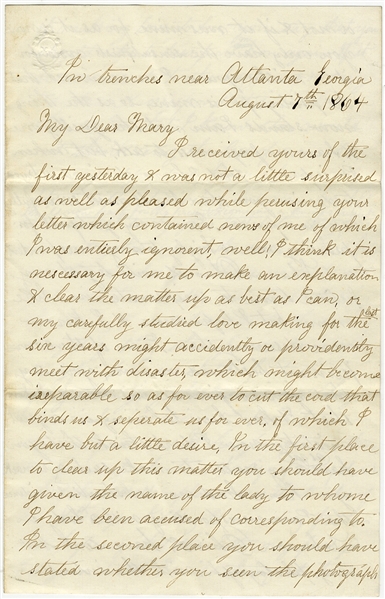 In trenches near Atlanta Georgia
August 7th 1864
My Dear Mary
I received yours of the
first yesterday & was not a little surprised
as well as pleased while perusing your
letter which contained news of me of which
I was entierly ignorent, well, I think it is
necessary for me to make an explanation
& clear the matter up as best as I can, or
my carfully studied love making for the past
six years might accidently or providently
meet with disaster, which might become
ireparable so as for ever to cut the cord that
binds us & seperate us for ever, of which I
have but a little desire, In the first place
to clear up this matter you should have
given the name of the lady to whome
I have been accused of corresponding to.
In the seconed place you should have
stated whether you seen the photograph